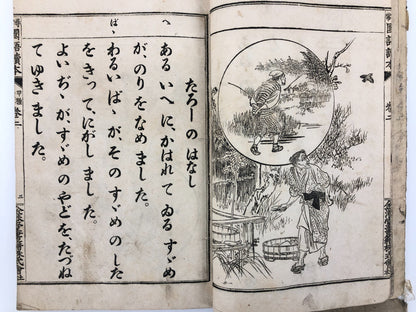 國語讀本
卷二
たろーの はなし
ある いへに、かはれて ゐる すゞめ
が、のりを なめ ました。
わるい ばゞ が、その すゞめの した
を きつて、にがし ました。
よい ぢゞ が すゞめの やどを、たづね
て ゆき ました。
へ
ばゞ
二
國語讀本
卷二